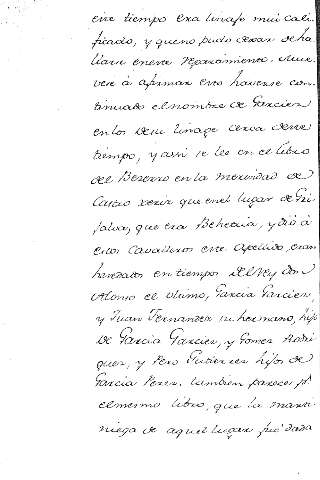 este tiempo era linaje mui cali-
ficado, y que no pudo dexar de ha-
llarse en este repartimiento. Mue-
vese à afirmar esto haverse con-
tinuado el nombre de Garcies
en los de su linage cerca de este
tiempo, y assi se lee en el libro
del Bezerro en la merindad de
Castro xeriz que en el lugar de Gri-
jalva, que era Behetria, y dió à
estos Cavalleros este apellido, eran
heredados en tiempo del Rey Don
Alonso el ultimo, Garcia Garcies,
y Juan Fernandez su hermano, hijos
de Garcia Garcies, y Gomez Rodri-
guez, y Pero Gutierrez hijos de
Garcia Perez, tambien parece pr.
el mismo libro, que la marti-
niega de aquel lugar fué dada